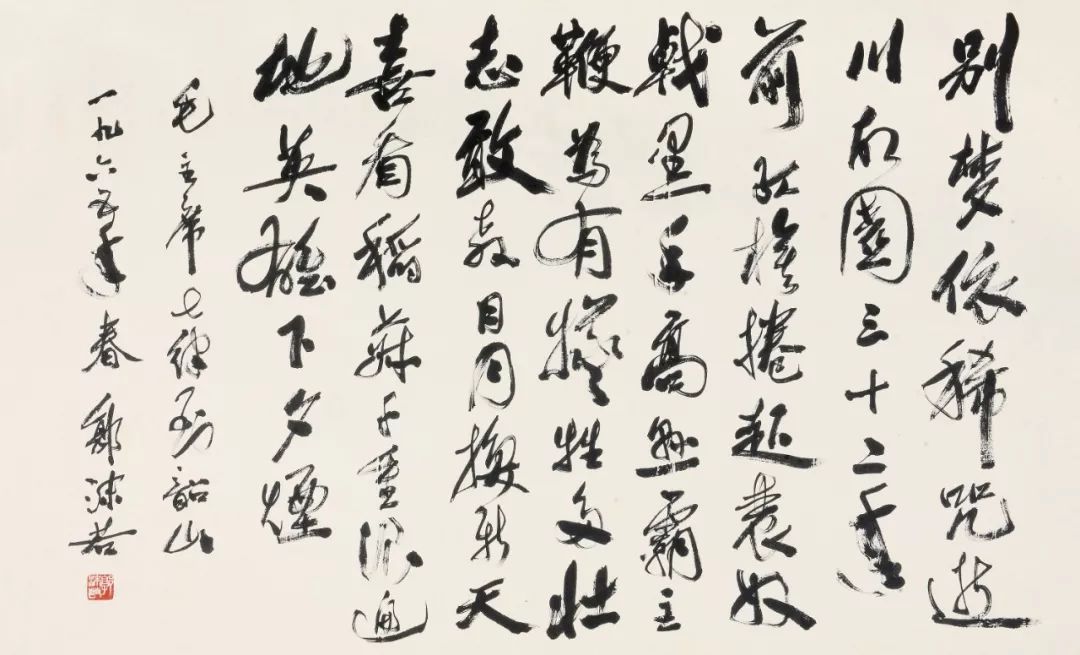 别夢依稀咒逝
川故園三十二年
前紅旗捲起農奴
戟黑手高懸霸主
鞭為有犧牲多壯
志敢教日月換新天
喜看稻菽千重浪遍
地英雄下夕煙
毛主席七律到韶山
一九六五年春 郭沫若